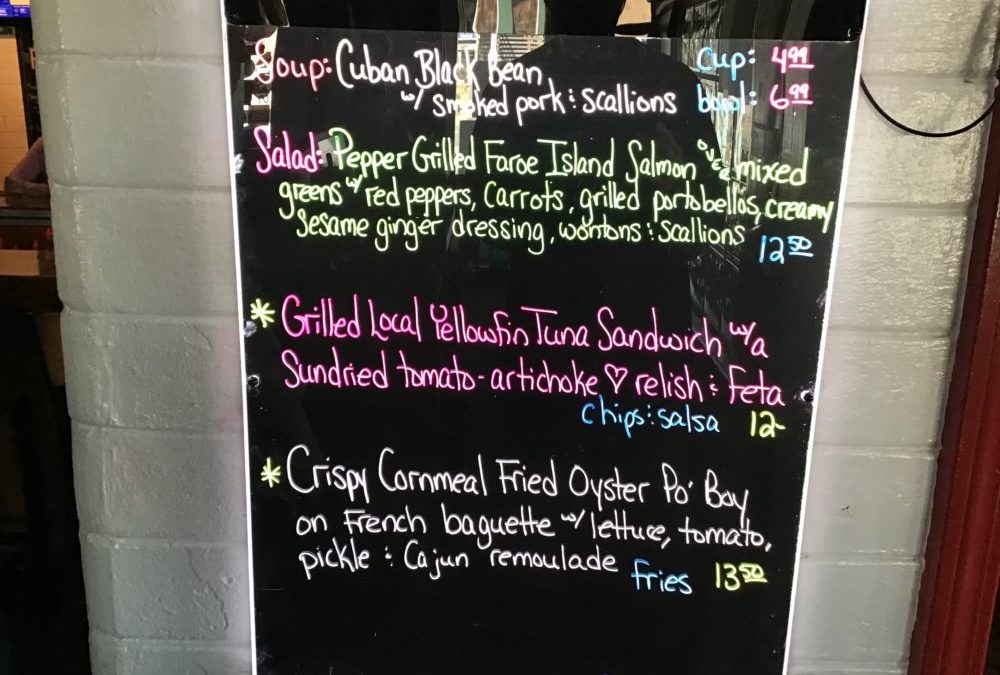 Soup: Cuban Black Bean Cup: 4.99
w/ smoked pork & scallions bowl: 6.99
Salad: Pepper Grilled Faroe Island Salmon over mixed
greens w/ red peppers, Carrots, grilled portobellos, creamy
Sesame ginger dressing, wontons & scallions
12.50
* Grilled Local Yellowfin Tuna Sandwich w/a
Sundried tomato-artichoke ♡ relish & Feta
chips & salsa 12-
* Crispy Cornmeal Fried Oyster Po' Boy
on French baguette w/ lettuce, tomato,
pickle & Cajun remoulade
fries 13.50